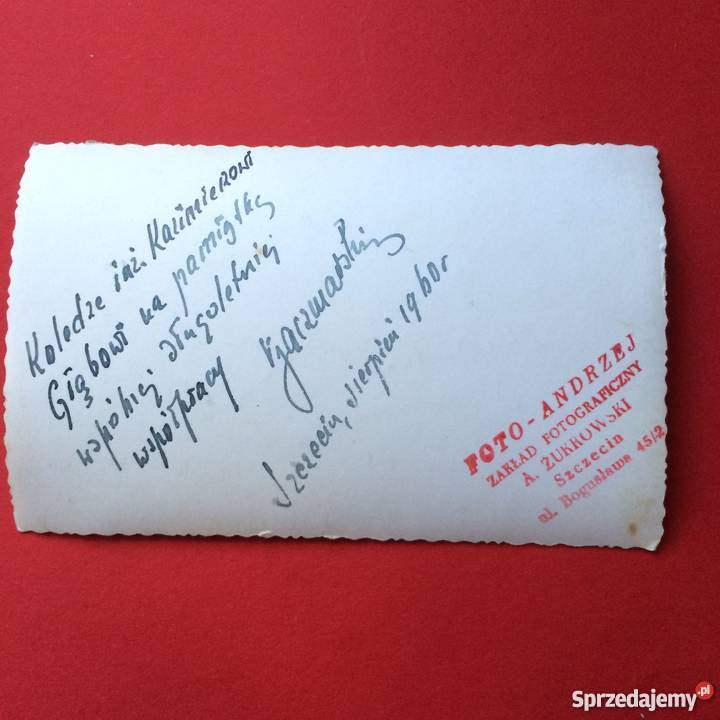 Koledze inż. Kazimierzowi
Głąbowi na pamiątkę
wspólnej długoletniej
współpracy
Szczecin, sierpień 1960r
FOTO-ANDRZEJ
ZAKŁAD FOTOGRAFICZNY
A. ŻUKROWSKI
Szczecin
ul. Bogusława 45/2
Sprzedajemy.pl